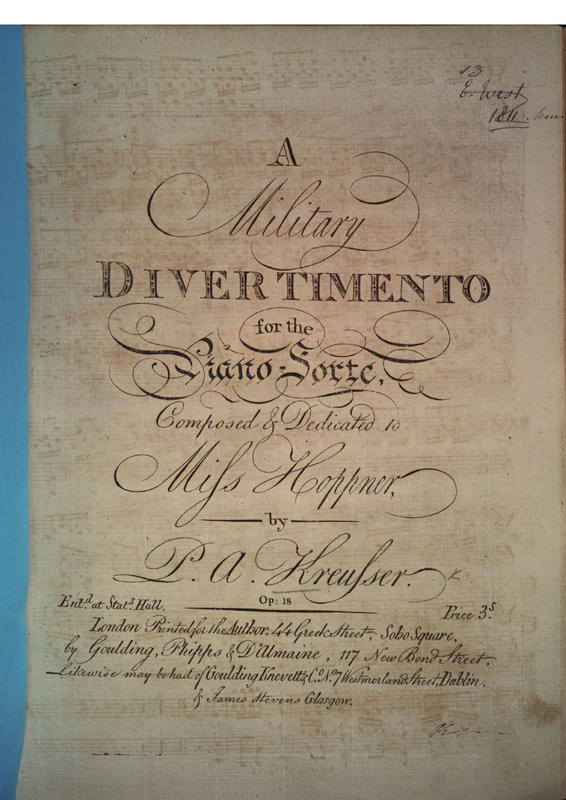 13
E. West
1811.
A
Military
DIVERTIMENTO
for the
Piano-Forte,
Composed & Dedicated to
Miſs Hoppner,
by
P. A. Kreuſser.
Op: 18
Ent.d at Stat.s Hall.
Price 3.s
London Printed for the Author, 44 Greek Street, Soho Square,
by Goulding, Phipps & D'Almaine, 117 New Bond Street,
Likewise may be had of Goulding Knevett & C.o N.o 7 Westmorland Street, Dublin.
& James Stevens Glasgow.